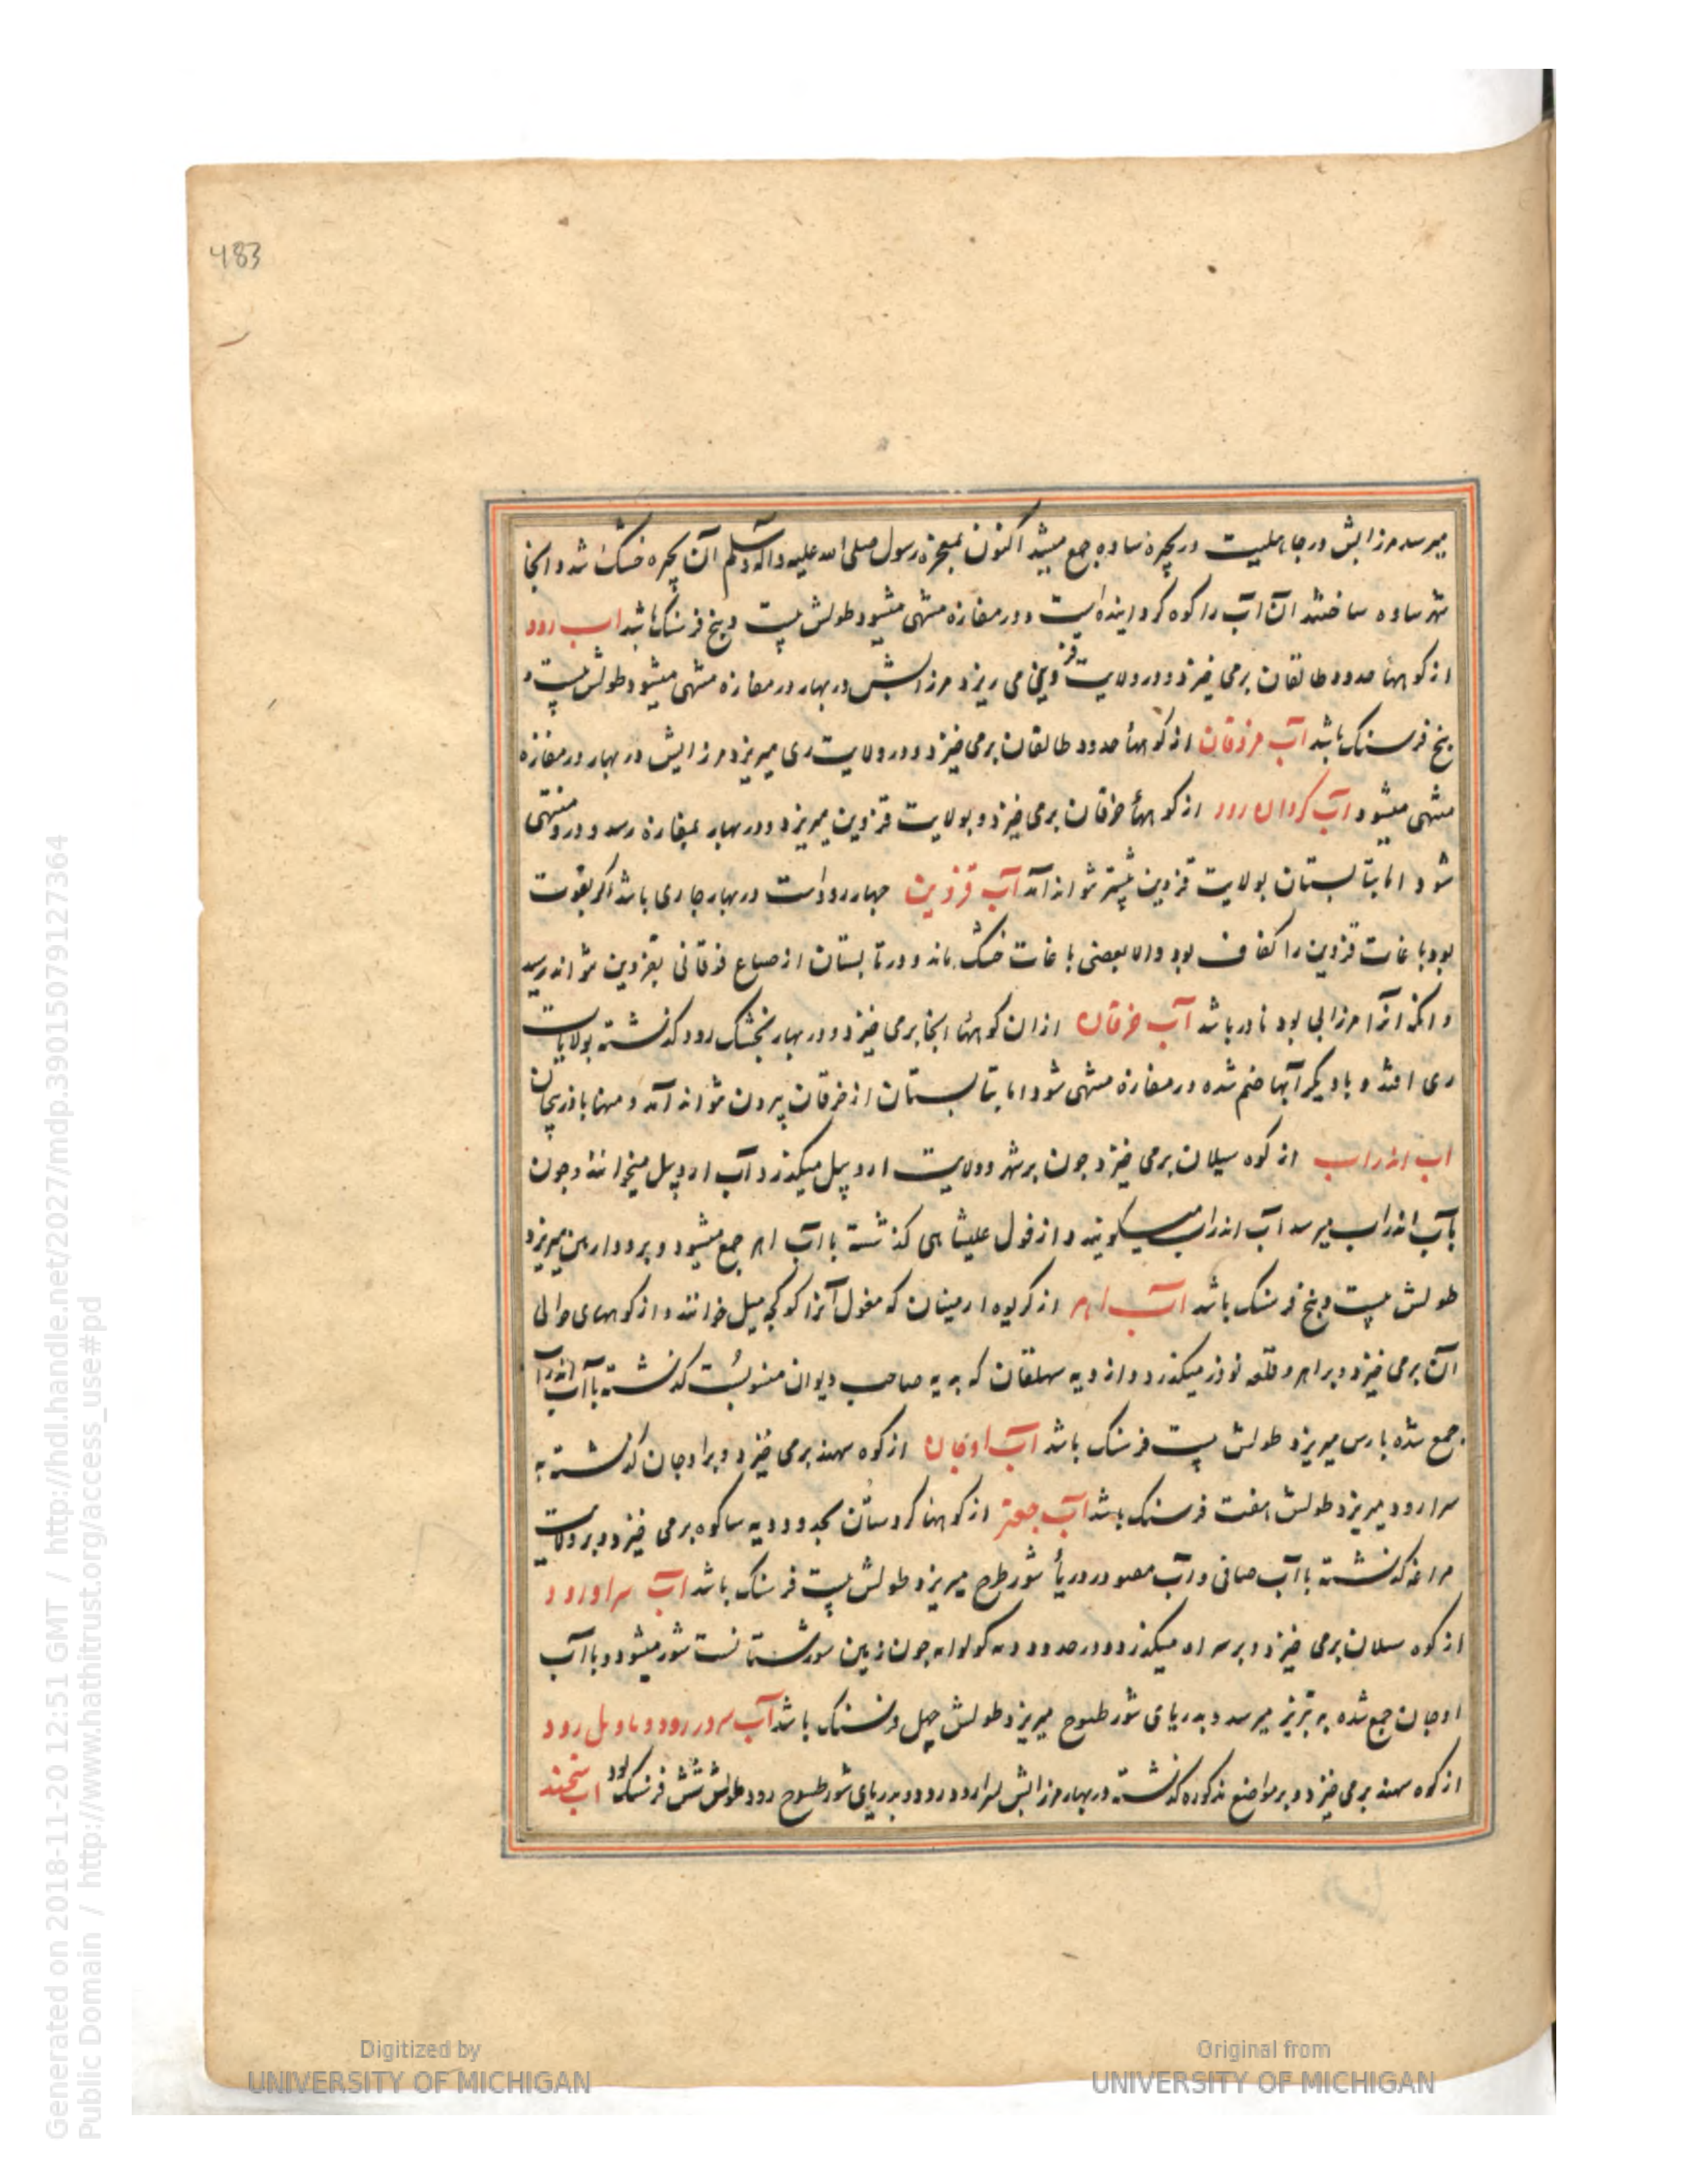 483
میرسد مرز ابش در جاهلیت در بحیره ساوه جمع میشد اکنون بمعجزه رسول صلی الله علیه و اله و سلم آن بحیره خشک شد و انجا
شهر ساوه ساختند ان آب را کوه کردانیده است و در مفازه منتهی میشود طولش بیست و پنج فرسنک باشد اب رود
از کوههاء حدود طالقان برمی خیزد و در ولایت قزوینی می ریزد مرز ابش در بهار در مفازه منتهی میشود طولش بیست و
پنج فرسنک باشد آب مزدقان از کوههاء حدود طالقان برمی خیزد و در ولایت ری میریزد مرز ابش در بهار در مفازه
منتهی میشود آب کردان رود از کوههاء خرقان برمی خیزد و بولایت قزوین میریزد و در بهار بمفازه رسد و درو منتهی
شود اما بتابستان بولایت قزوین بیشتر نتواند آمد آب قزوین چهار رود است در بهار جاری باشد اکر بقوت
بود باغات قزوین را کفاف بود والا بعضی باغات خشک ماند و در تابستان از ضیاع فوقانی بقزوین نتواند رسید
و انکه انرا مرز ابی بود نادر باشد آب خرقان از ان کوههاء انجا برمی خیزد و در بهار بخشک رود کذشته بولایات
ری افتد و با دیکر آبها ضم شده در مفازه منتهی شود اما بتابستان از خرقان بیرون نتواند آمد و میاه آذربیجان
اب اندراب از کوه سبلان برمی خیزد چون بر شهر و ولایت اردبیل میکذرد آب اردبیل میخوانند و چون
بآب اندراب میرسد آب اندراب میکویند و از قول علیشاهی کذشته با آب اهر جمع میشود و برود ارس میریزد
طولش بیست و پنج فرسنک باشد آب اهر از کریوه ارمینان که مغول آنرا کوکچه میل خوانند و از کوههای حوالی
آن برمی خیزد و بر اهر و قلعه نودز میکذرد و از دیه سهلقان که به صاحب دیوان منسوبست کذشته با آب اندراب
جمع شده بارس میریزد طولش بیست فرسنک باشد آب اوجان از کوه سهند برمی خیزد و بر اوجان کذشته به
سرارود میریزد طولش هفت فرسنک باشد آب جغتو از کوههاء کردستان بحدود دیه سیاکوه برمی خیزد و بر ولایت
مراغه کذشته با آب صافی و آب در دریاء شور طروج میریزد طولش بیست فرسنک باشد آب سراورود
از کوه سبلان برمی خیزد و بر سراه میکذرد و در حدود چون زمین شور میشود و با آب
اوجان جمع شده به تبریز میرسد و بدریای شور طسوج میریزد طولش چهل فرسنک باشد آب سردرود و ماویل رود
از کوه سهند برمی خیزد و بر مواضع مذکوره کذشته در بهار مرز ابش بسرارود رود و بدریای شور طسوج رود طولش شش فرسنک بود آب
Digitized by
UNIVERSITY OF MICHIGAN
Original from
UNIVERSITY OF MICHIGAN
Generated on 2018-11-20 12:51 GMT / http://hdl.handle.net/2027/mdp.39015079127364
Public Domain / http://www.hathitrust.org/access_use#pd